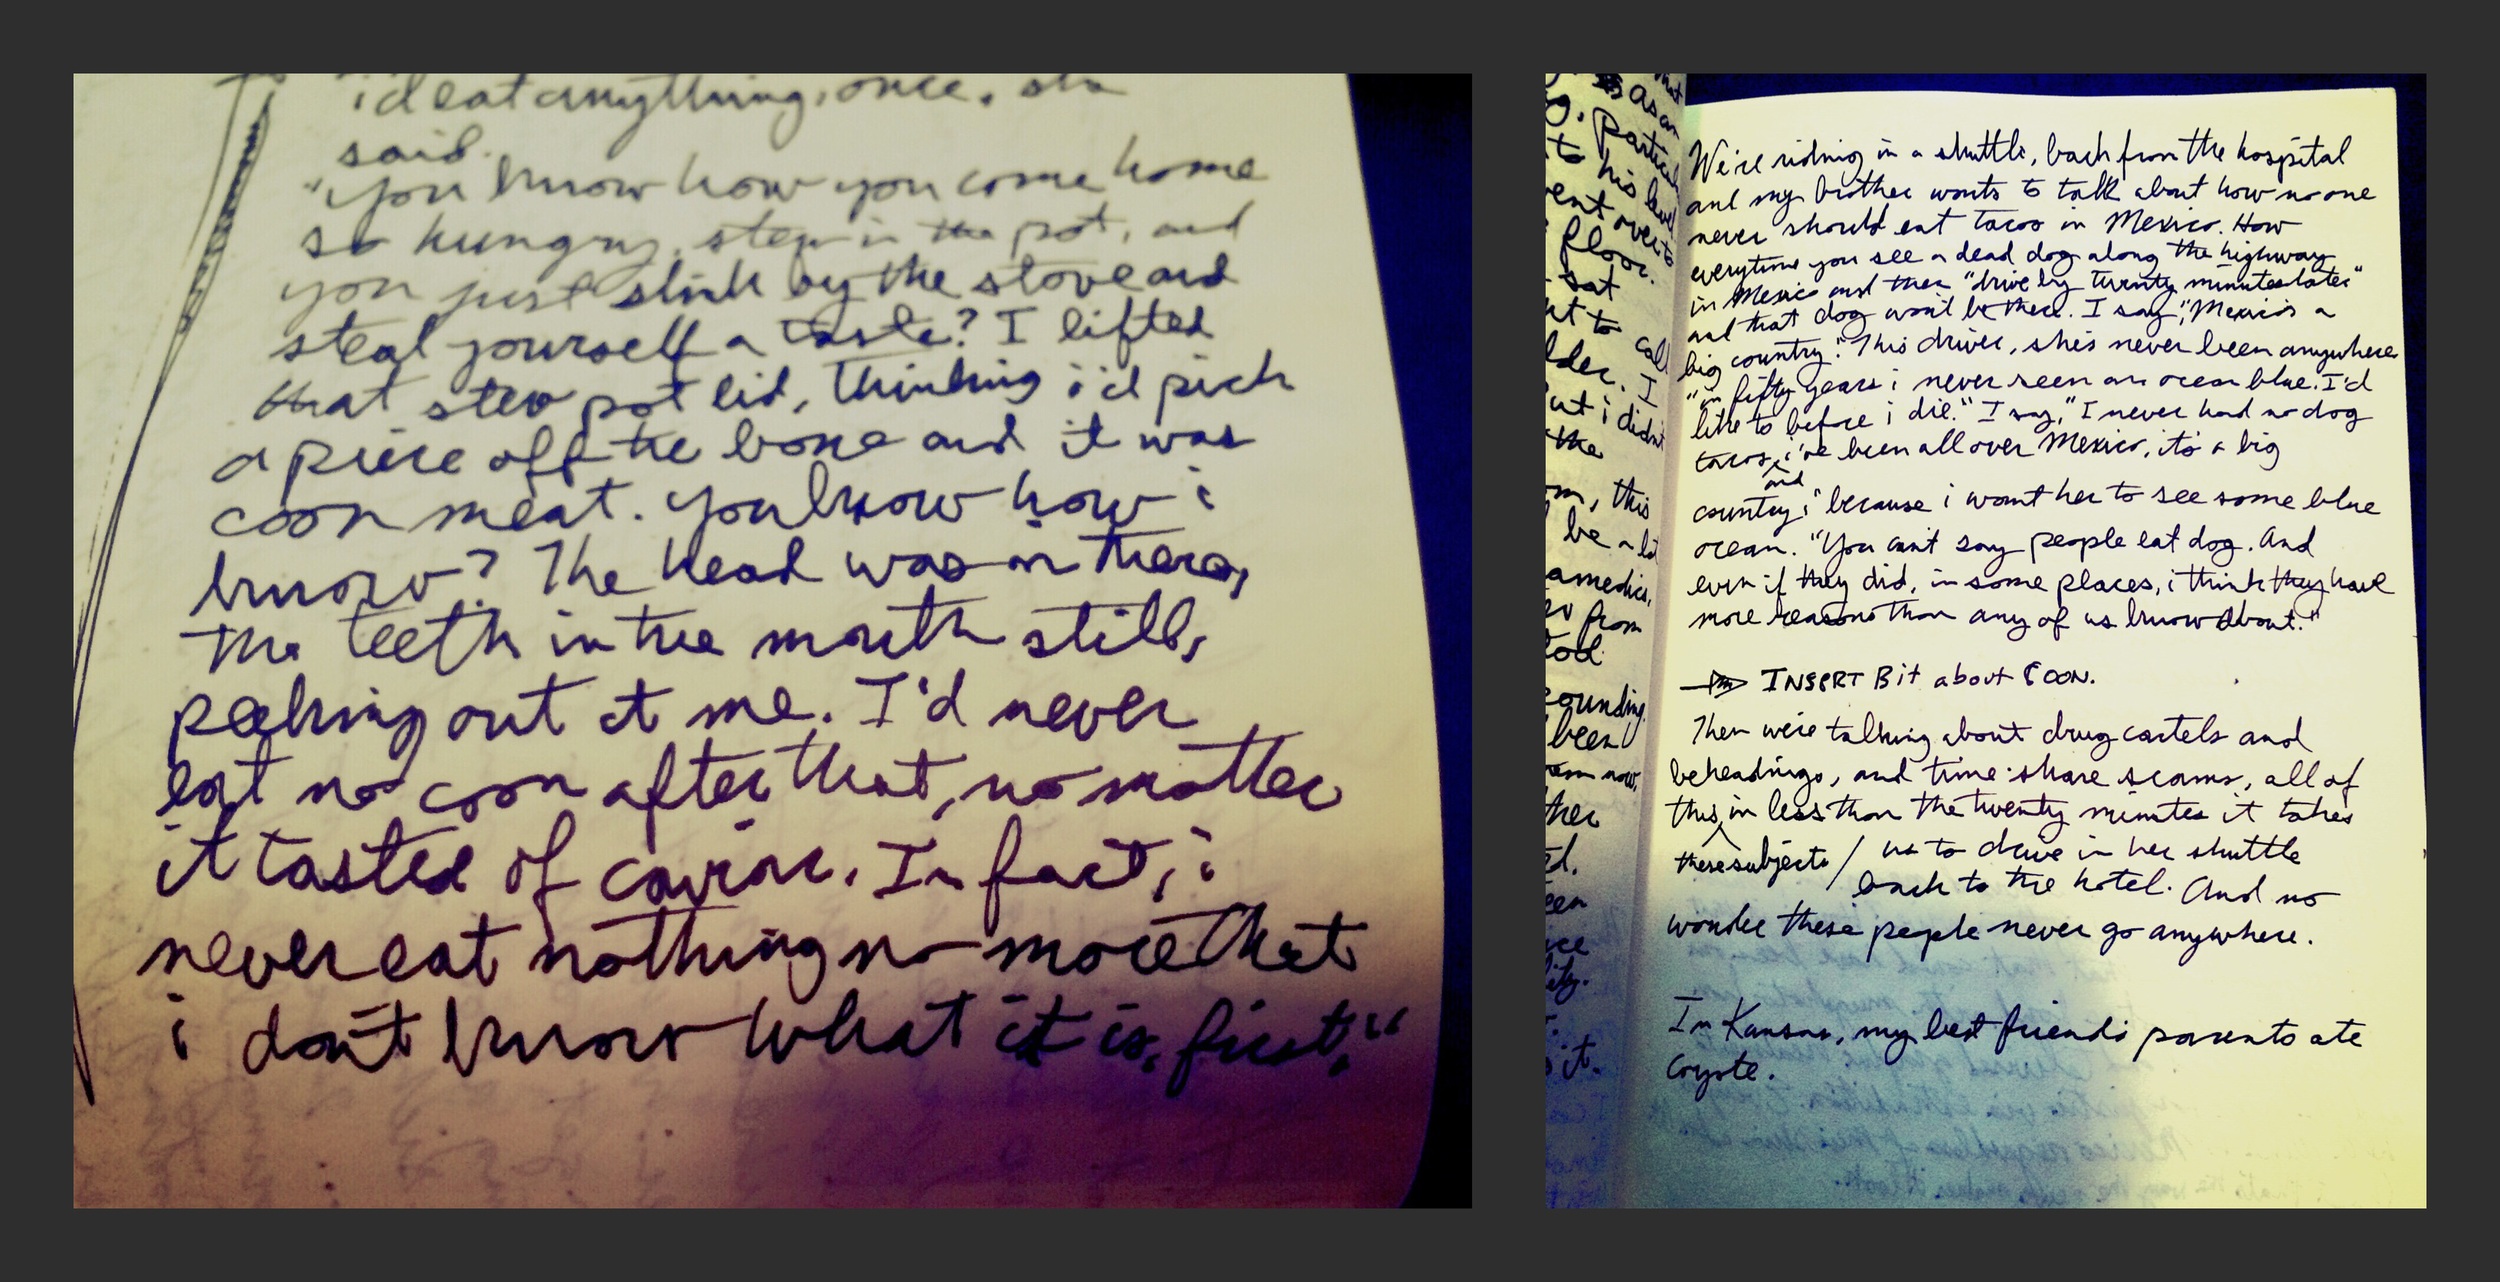 i'd eat anything, once, she
said.
"You know how you come home
so hungry, stew in the pot, and
you just slink by the stove and
steal yourself a taste? I lifted
that stew pot lid, thinking i'd pick
a piece off the bone and it was
coon meat. You know how i
know? The head was in there,
the teeth in the mouth still,
peeking out at me. I'd never
eat no coon after that, no matter
it tasted of caviar. In fact, i
never eat nothing no more that
i don't know what it is, first."
We're riding in a shuttle, back from the hospital
and my brother wants to talk about how no one
never should eat tacos in Mexico. How
everytime you see a dead dog along the highway
in Mexico and then "drive by twenty minutes later"
and that dog won't be there. I say, "Mexico's a
big country." This driver, she's never been anywhere
"in fifty years i never seen an ocean blue. I'd
like to before i die." I say, "I never had no dog
tacos, i've been all over Mexico, it's a big
and
country," because i want her to see some blue
ocean. "You can't say people eat dog. And
even if they did, in some places, i think they have
more reasons than any of us know about."
INSERT Bit about COON.
Then we're talking about drug cartels and
beheadings, and time-share scams, all of
this in less than the twenty minutes it takes
these subjects / us to drive in her shuttle
back to the hotel. And no
wonder these people never go anywhere.
In Kansas, my best friend's parents ate
coyote.
as an
to his
floor.
sat
to call
I
i didn't
the
this
be a lot
from
been
it.